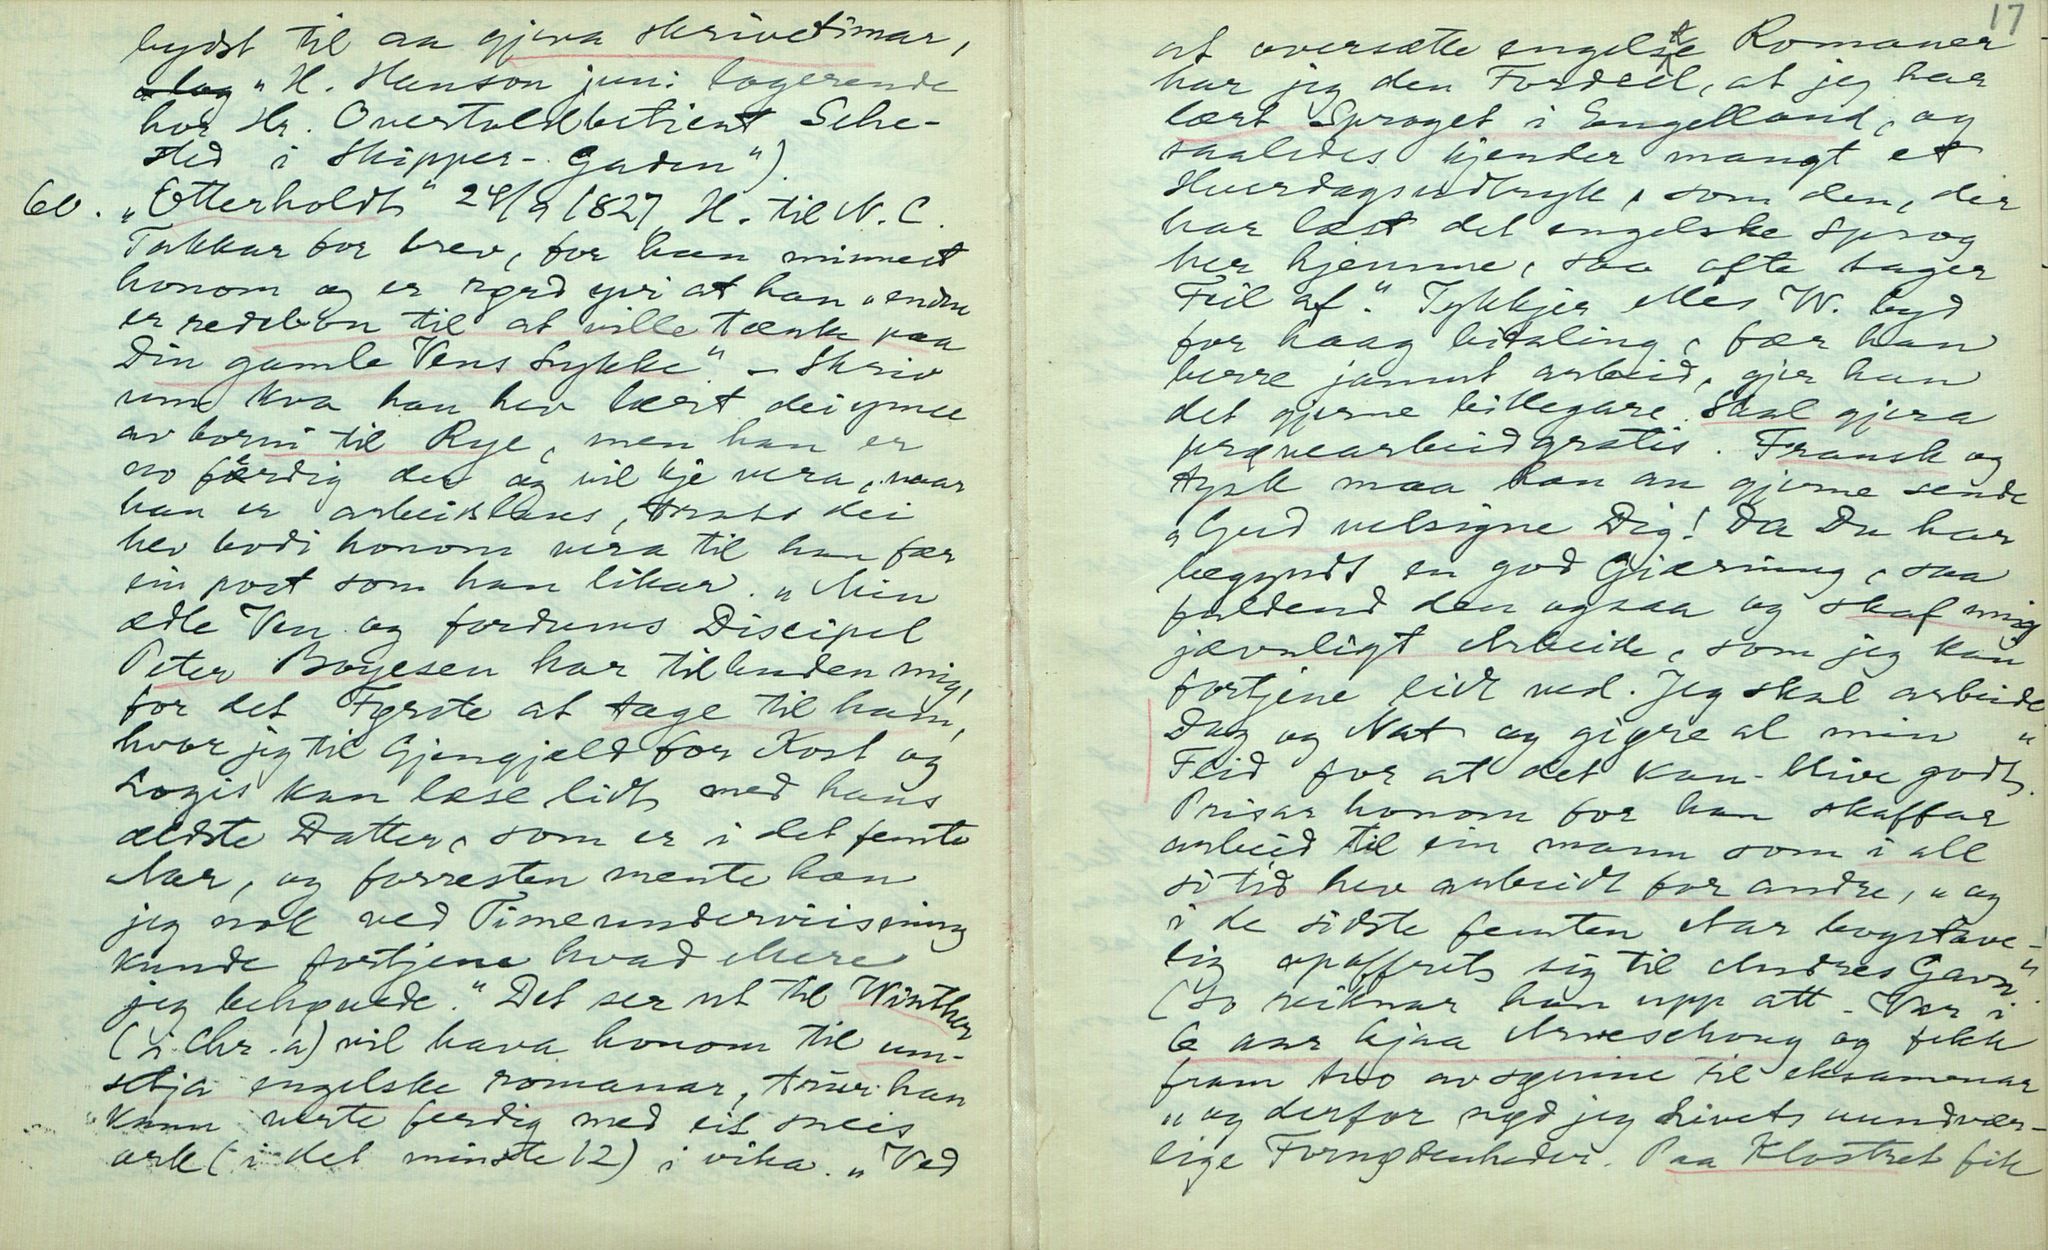 bydst til aa gjeva skrivetimar,
"H. Hanson jun: logerende
hos Hr. Overtoldbetient Sehe-
sted i Skipper-Gaden").
60. "Etterholdt" 24/9 1827 H. til N. C.
Takkar for brev, for han minnest
honom og er glad yvi at han "endnu
er redebon til at ville tænke paa
Din gamle Vens Lykke" – Skriv
um kva han hev lært dei ymse
av borni til Rye, men han er
no færdig der og vil kje vera, naar
han er arbeidslaus, trass dei
hev bodi honom vera til han fær
ein post som han likar. "Min
ædle Ven og fordums Discipel
Peter Boyesen har tilbuden mig,
for det Første at tage til ham,
hvor jeg til Gjengjæld for Kost og
Logis kan læse lidt med hans
ældste Datter, som er i det femte
Aar, og forresten mente han
jeg nok ved Timeunderviisning
kunde fortjene hvad Mere
jeg behøvede." Det ser ut til Winther
(i Chr.a) vil hava honom til um-
setja engelske romanar, trur han
kann verte ferdig med eit sneis
ark (i det minste 12) i vika. "Ved
17
at oversætte engelske Romaner
har jeg den Fordeel, at jeg har
lært Sproget i Engelland, og
saaledes kjender mangt et
Hverdagsudtryk, som den, der
har læst det engelske Sprog
her hjemme, saa ofte tager
Feil af." Tykkjer elles W. byd
for haag betaling, fær han
berre jamnt arbeid, gjer han
det gjerne billegare. Skal gjera
prøvearbeid gratis. Fransk og
tysk maa han an gjerne sende
"Gud velsigne Dig! Da Du har
begyndt en god Gjærning, saa
fuldend den ogsaa og skaf mig
jævnligt Arbeide, som jeg kan
fortjene lidt ved. Jeg skal arbeide
Dag og Nat og gjøre al min
Flid for at det kan blive godt."
Prisar honom for han skaffar
arbeid til ein mann som i all
si tid hev arbeidt for andre, "og
i de sidste femten Aar bogstave-
lig opoffret sig til Andres Gavn."
(So reiknar han upp att – Var i
6 aar hjaa Arveschoug og fekk
fram two av sønine til eksamenar
"og derfor nød jeg Livets uundvær-
lige Fornødenheder. Paa Klostret fik